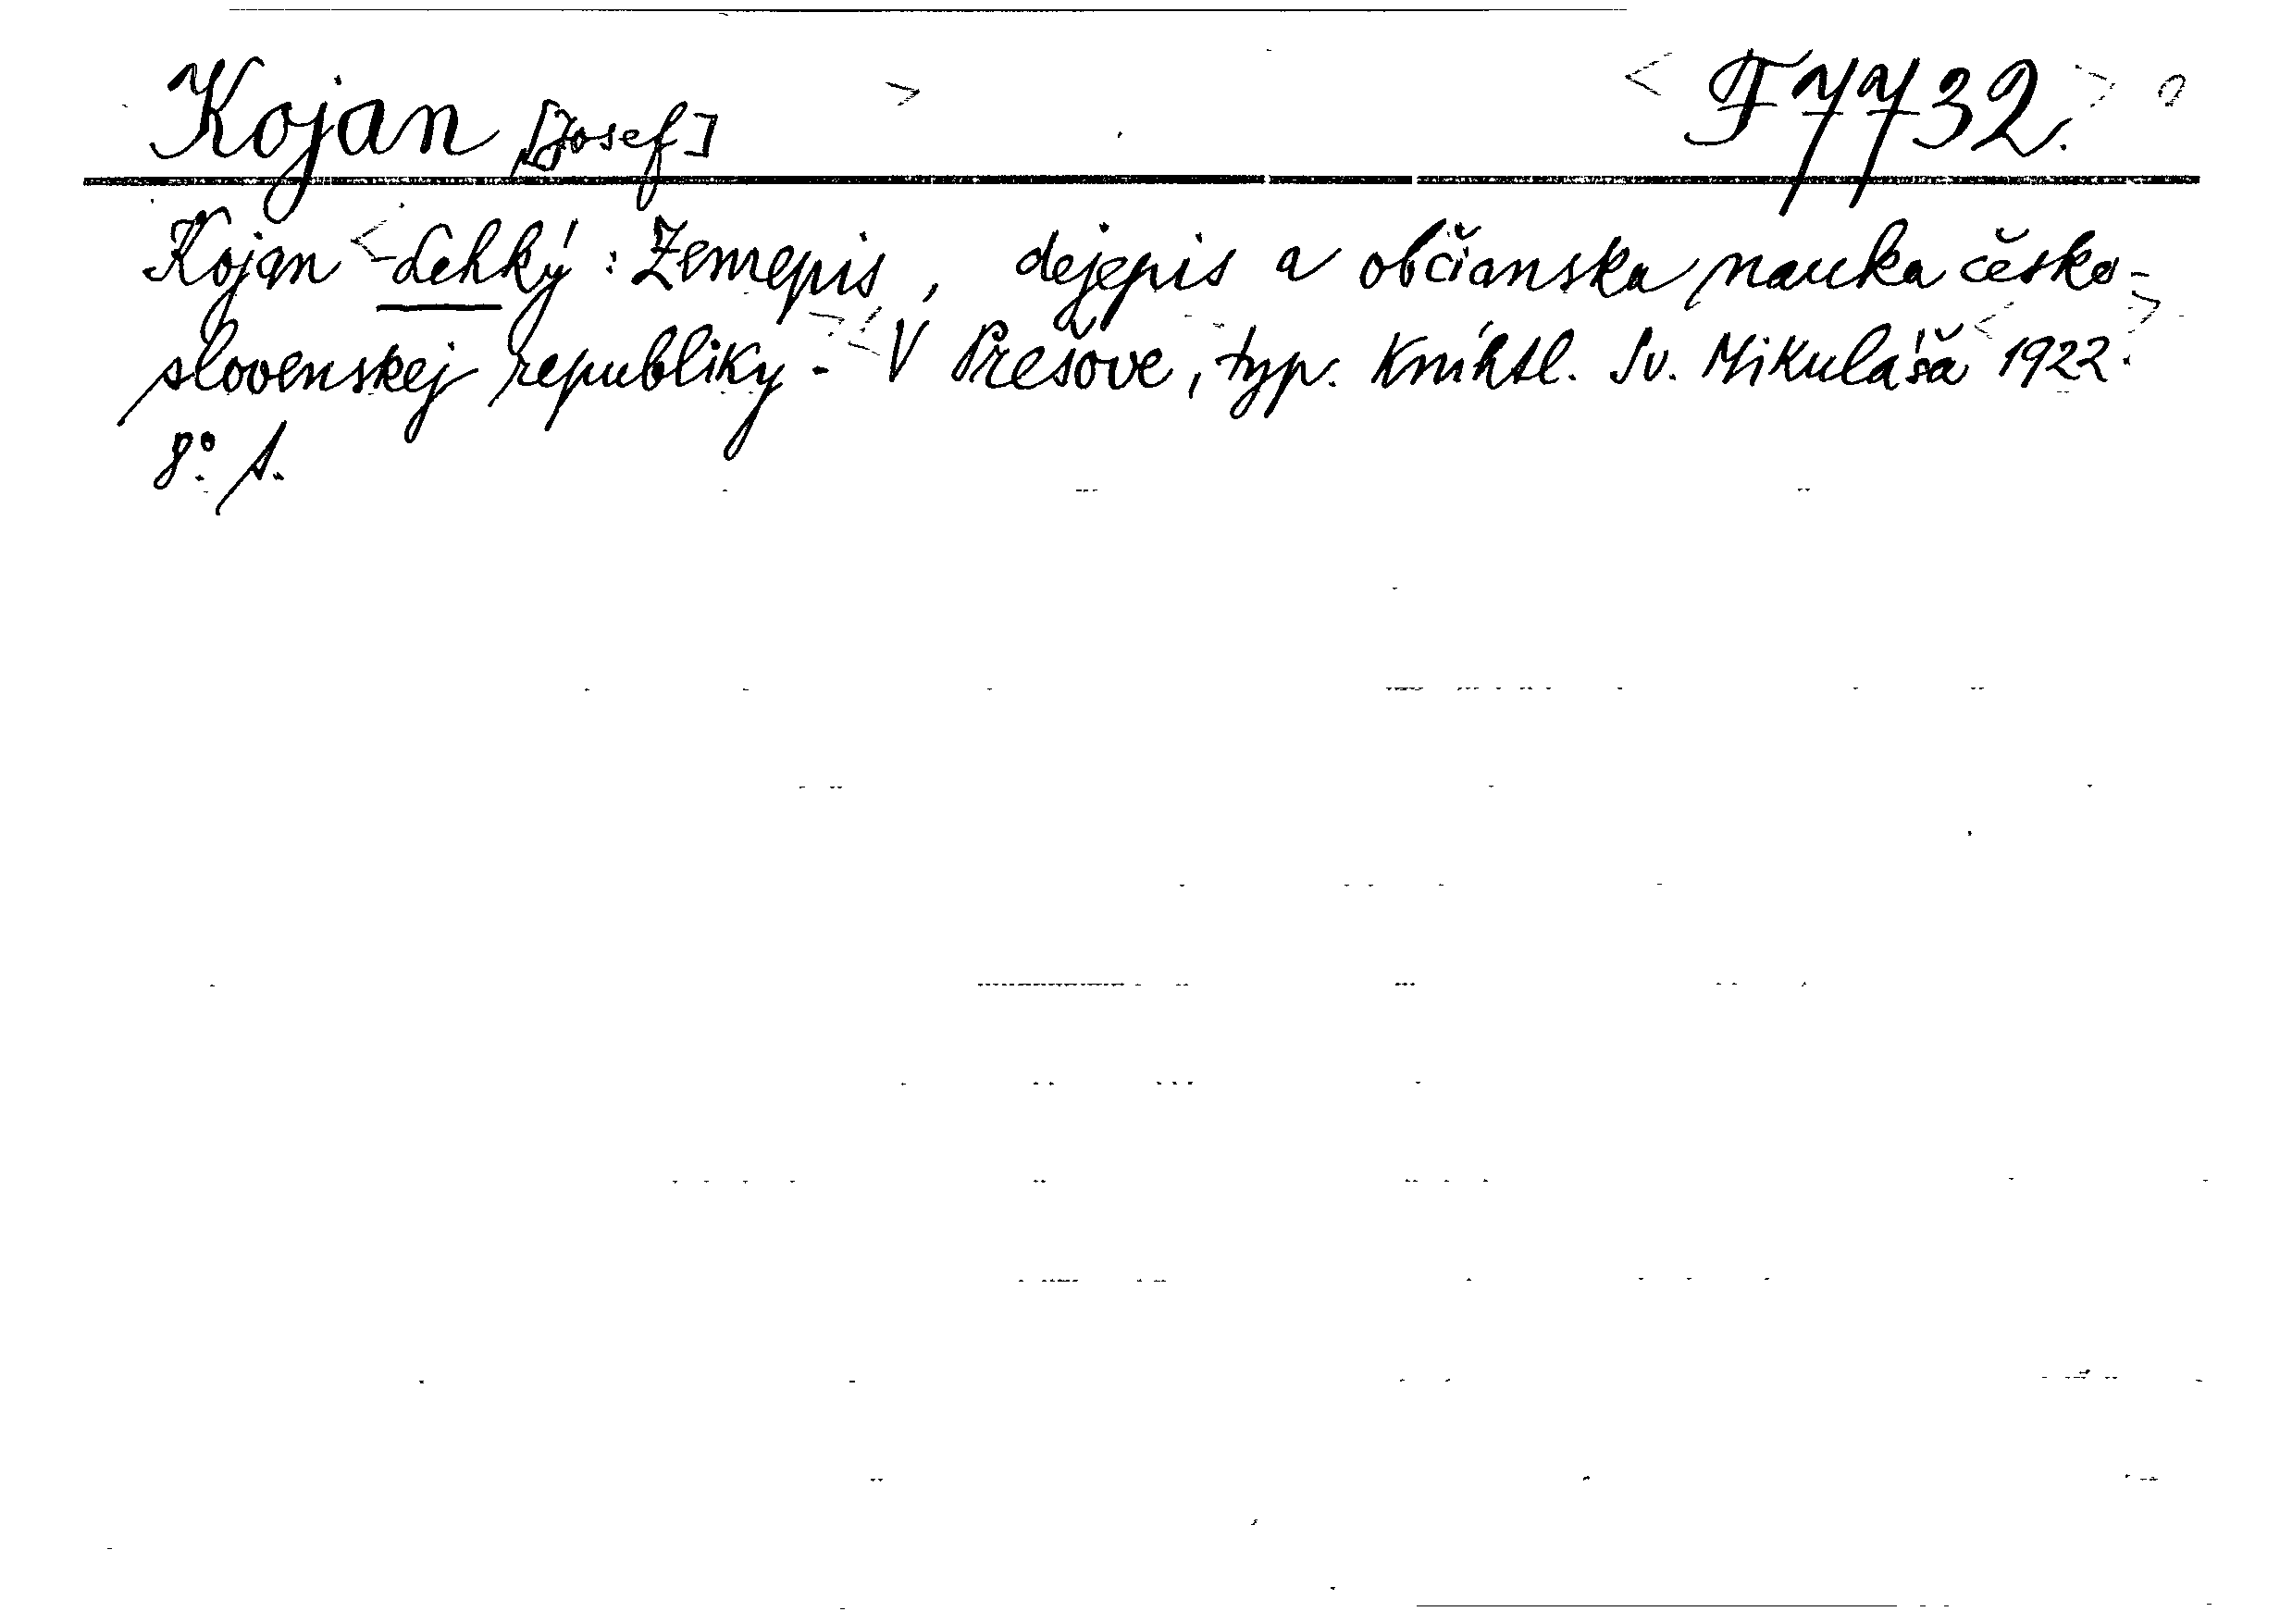 Kojan [Josef] F 7732.
Kojan - Lehký : Zemepis, dejepis a občianska nauka česko-
slovenskej republiky. - V Prešove, typ. Kníhtl. Sv. Mikuláša 1922.
8°. s.